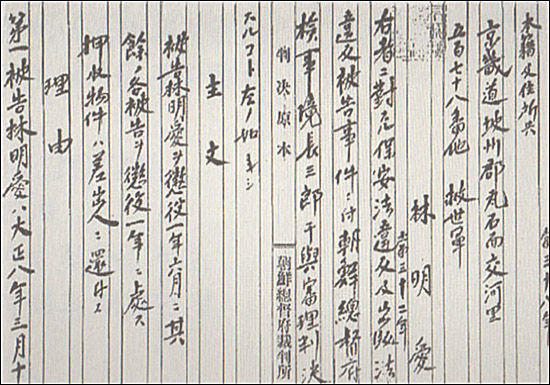 本籍及住所共
京畿道坡州郡瓦石面交河里
五百七十八番地 救世軍
林明愛
三十二年
右者ニ對スル保安法違反及出版法
違反被告事件ニ付朝鮮總督府
檢事境長三郎干與審理判決
判決原本
朝鮮總督府裁判所
スルコト左ノ如シ
主文
被告林明愛ヲ懲役一年六月ニ其
餘ノ各被告ヲ懲役一年ニ處ス
押收物件ハ差出人ニ還付ス
理由
第一被告林明愛ハ大正八年三月十